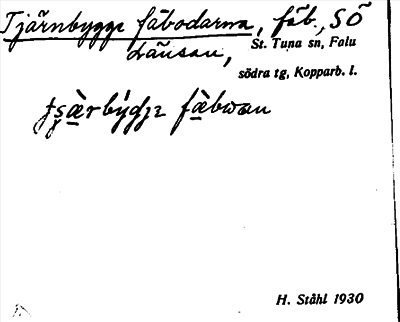 Tjärnbygge fäbodarna, fäb., SÖ
Länsan,
St. Tuna sn, Falu
södra tg, Kopparb. l.
fäbwan
H. Ståhl 1930